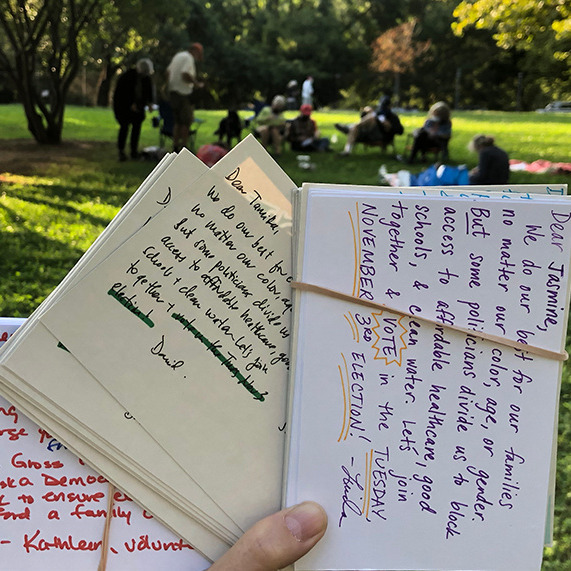 Dear Jasmine,
We do our best for our families
no matter our color, age, or gender.
But some politicians divide us to block
access to affordable healthcare, good
schools, & clean water. Let's join
together & VOTE in the TUESDAY,
NOVEMBER 3RD ELECTION! - Linda
Dear
We do our best for
no matter our color, age
But some politicians divide us
access to affordable healthcare, goo
schools + clean water. Let's join
together +
elections!
David
Gross
ska Democ
to ensure
ford a family
- Kathleen, volunt